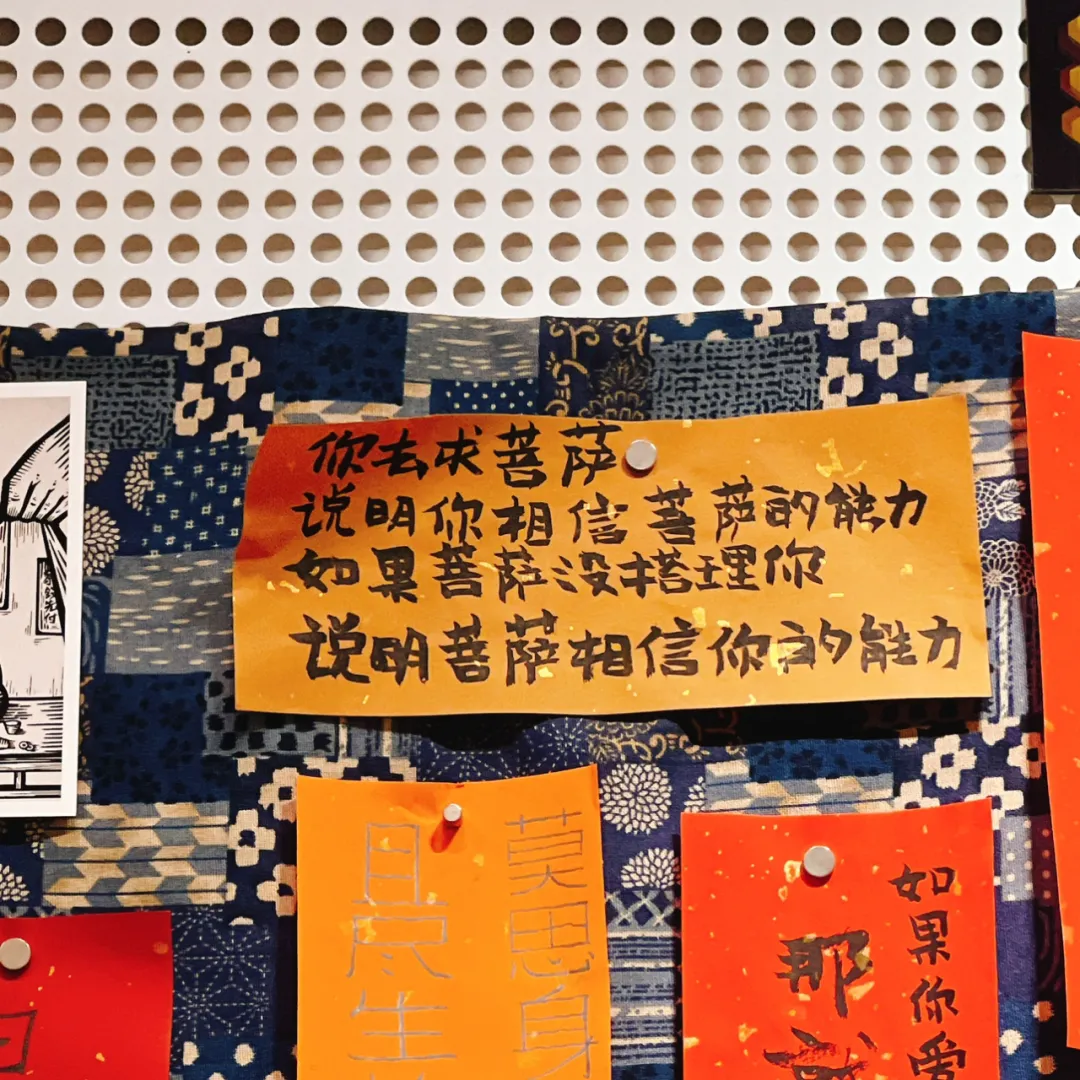 你去求菩萨
说明你相信菩萨的能力
如果菩萨没搭理你
说明菩萨相信你的能力
莫思身
且尽生
如果你爱
那就